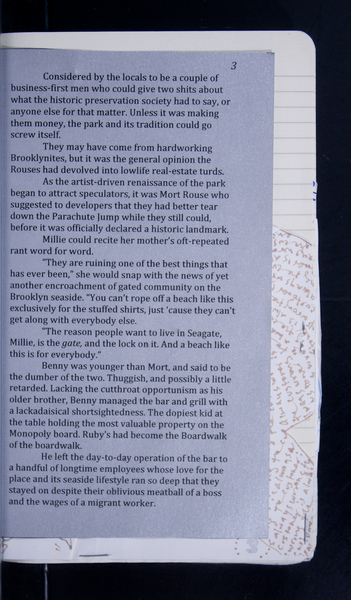 3
Considered by the locals to be a couple of
business-first men who could give two shits about
what the historic preservation society had to say, or
anyone else for that matter. Unless it was making
them money, the park and its tradition could go
screw itself.
They may have come from hardworking
Brooklynites, but it was the general opinion the
Rouses had devolved into lowlife real-estate turds.
As the artist-driven renaissance of the park
began to attract speculators, it was Mort Rouse who
suggested to developers that they had better tear
down the Parachute Jump while they still could,
before it was officially declared a historic landmark.
Millie could recite her mother's oft-repeated
rant word for word.
"They are ruining one of the best things that
has ever been," she would snap with the news of yet
another encroachment of gated community on the
Brooklyn seaside. "You can't rope off a beach like this
exclusively for the stuffed shirts, just 'cause they can't
get along with everybody else.
"The reason people want to live in Seagate,
Millie, is the gate, and the lock on it. And a beach like
this is for everybody."
Benny was younger than Mort, and said to be
the dumber of the two. Thuggish, and possibly a little
retarded. Lacking the cutthroat opportunism as his
older brother, Benny managed the bar and grill with
a lackadaisical shortsightedness. The dopiest kid at
the table holding the most valuable property on the
Monopoly board. Ruby's had become the Boardwalk
of the boardwalk.
He left the day-to-day operation of the bar to
a handful of longtime employees whose love for the
place and its seaside lifestyle ran so deep that they
stayed on despite their oblivious meatball of a boss
and the wages of a migrant worker.